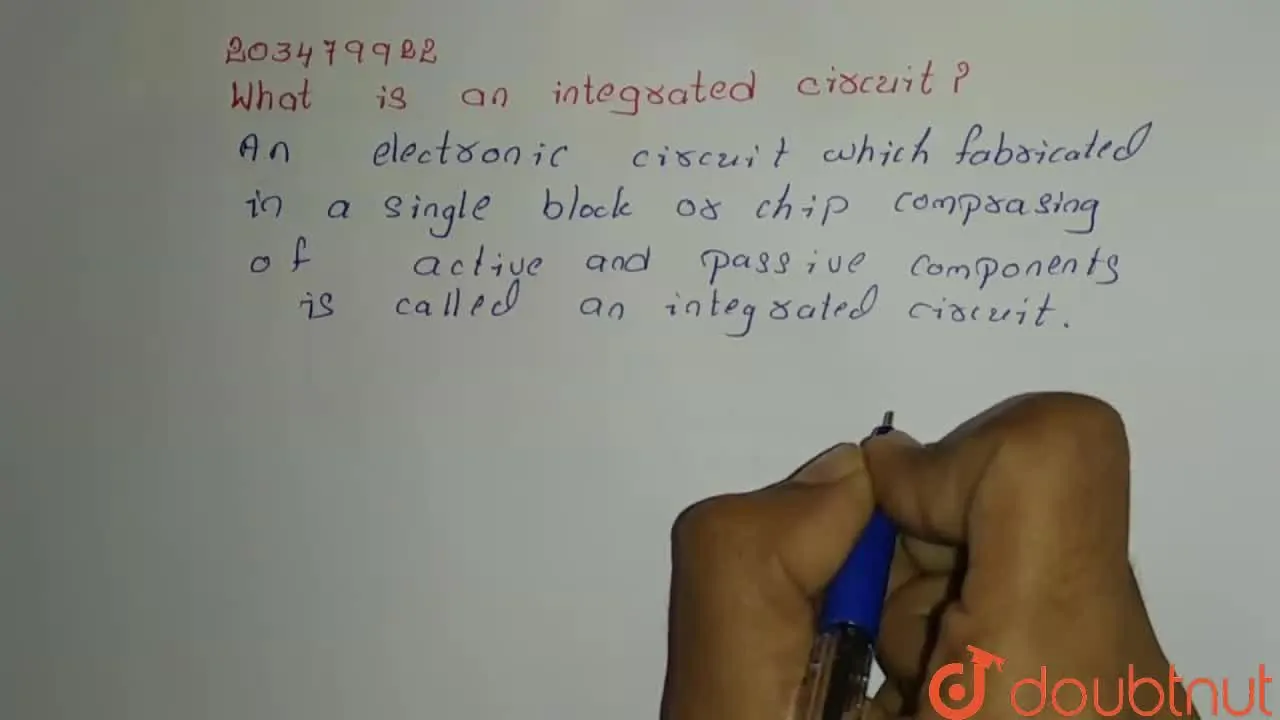 203479922
What is an integrated circuit?
An electronic circuit which fabricated
in a single block or chip comprasing
of active and passive components
is called an integrated circuit.
doubtnut